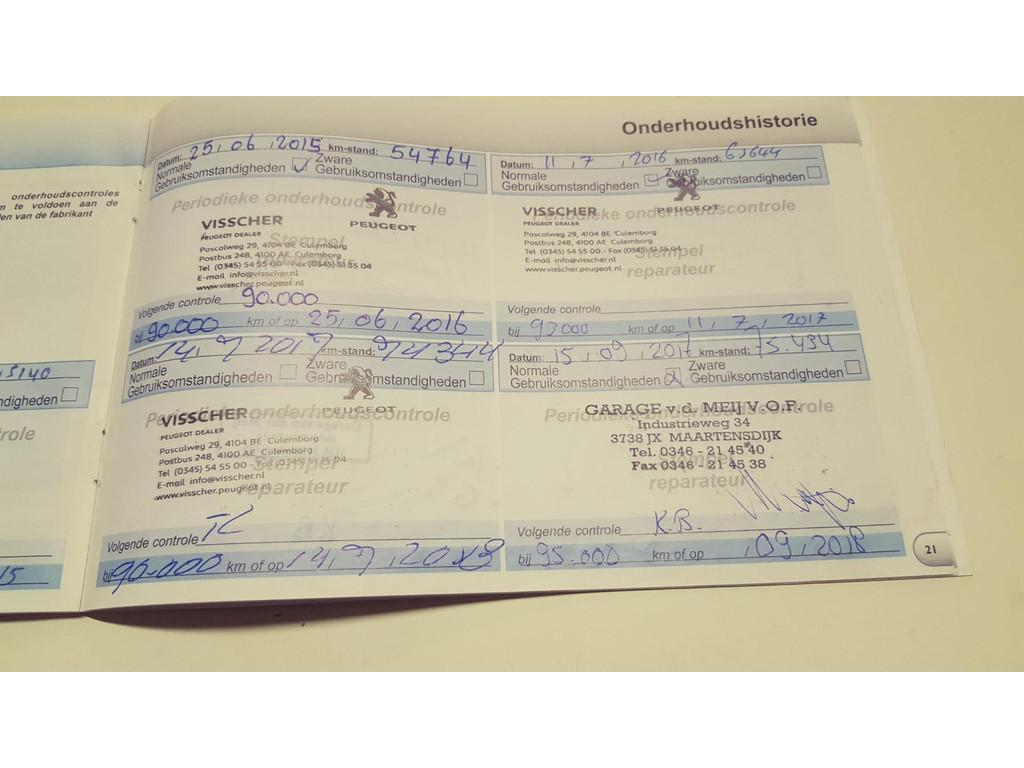 Onderhoudshistorie
onderhoudscontroles
te voldoen aan de
van de fabrikant
15
Datum: 25, 06, 2015 km-stand: 54764
Normale Gebruiksomstandigheden ✓ Zware Gebruiksomstandigheden
Periodieke onderhoudscontrole
VISSCHER
PEUGEOT DEALER
PEUGEOT
Pascalweg 29, 4104 BE Culemborg
Postbus 248, 4100 AE Culemborg
Tel (0345) 54 55 00 - Fax (0345) 51 35 04
E-mail info@visscher.nl
www.visscher.peugeot.nl
Stempel
Volgende controle 90.000
bij 90.000 km of op 25, 06, 2016
Datum: 11, 7, 2016 km-stand:
Normale Gebruiksomstandigheden Zware Gebruiksomstandigheden
Periodieke onderhoudscontrole
VISSCHER
PEUGEOT DEALER
PEUGEOT
Pascalweg 29, 4104 BE Culemborg
Postbus 248, 4100 AE Culemborg
Tel (0345) 54 55 00 - Fax (0345) 51 35 04
E-mail info@visscher.nl
www.visscher.peugeot.nl
Stempel
reparateur
Volgende controle
bij 93000 km of op 11, 7, 2017
Datum: 14, 9, 2017 km-stand:
Normale Gebruiksomstandigheden Zware Gebruiksomstandigheden
Periodieke onderhoudscontrole
VISSCHER
PEUGEOT DEALER
PEUGEOT
Pascalweg 29, 4104 BE Culemborg
Postbus 248, 4100 AE Culemborg
Tel (0345) 54 55 00 - Fax (0345) 51 35 04
E-mail info@visscher.nl
www.visscher.peugeot.nl
Stempel
reparateur
Volgende controle
bij 90.000 km of op 14, 9, 2018
Datum: 15, 09, 2017 km-stand: 75.434
Normale Gebruiksomstandigheden Zware Gebruiksomstandigheden
Periodieke onderhoudscontrole
GARAGE v.d. MEIJ V.O.F.
Industrieweg 34
3738 JX MAARTENSDIJK
Tel. 0346 - 21 45 40
Fax 0346 - 21 45 38
Stempel
reparateur
Volgende controle K.B.
bij 95.000 km of op , 09, 2018
21